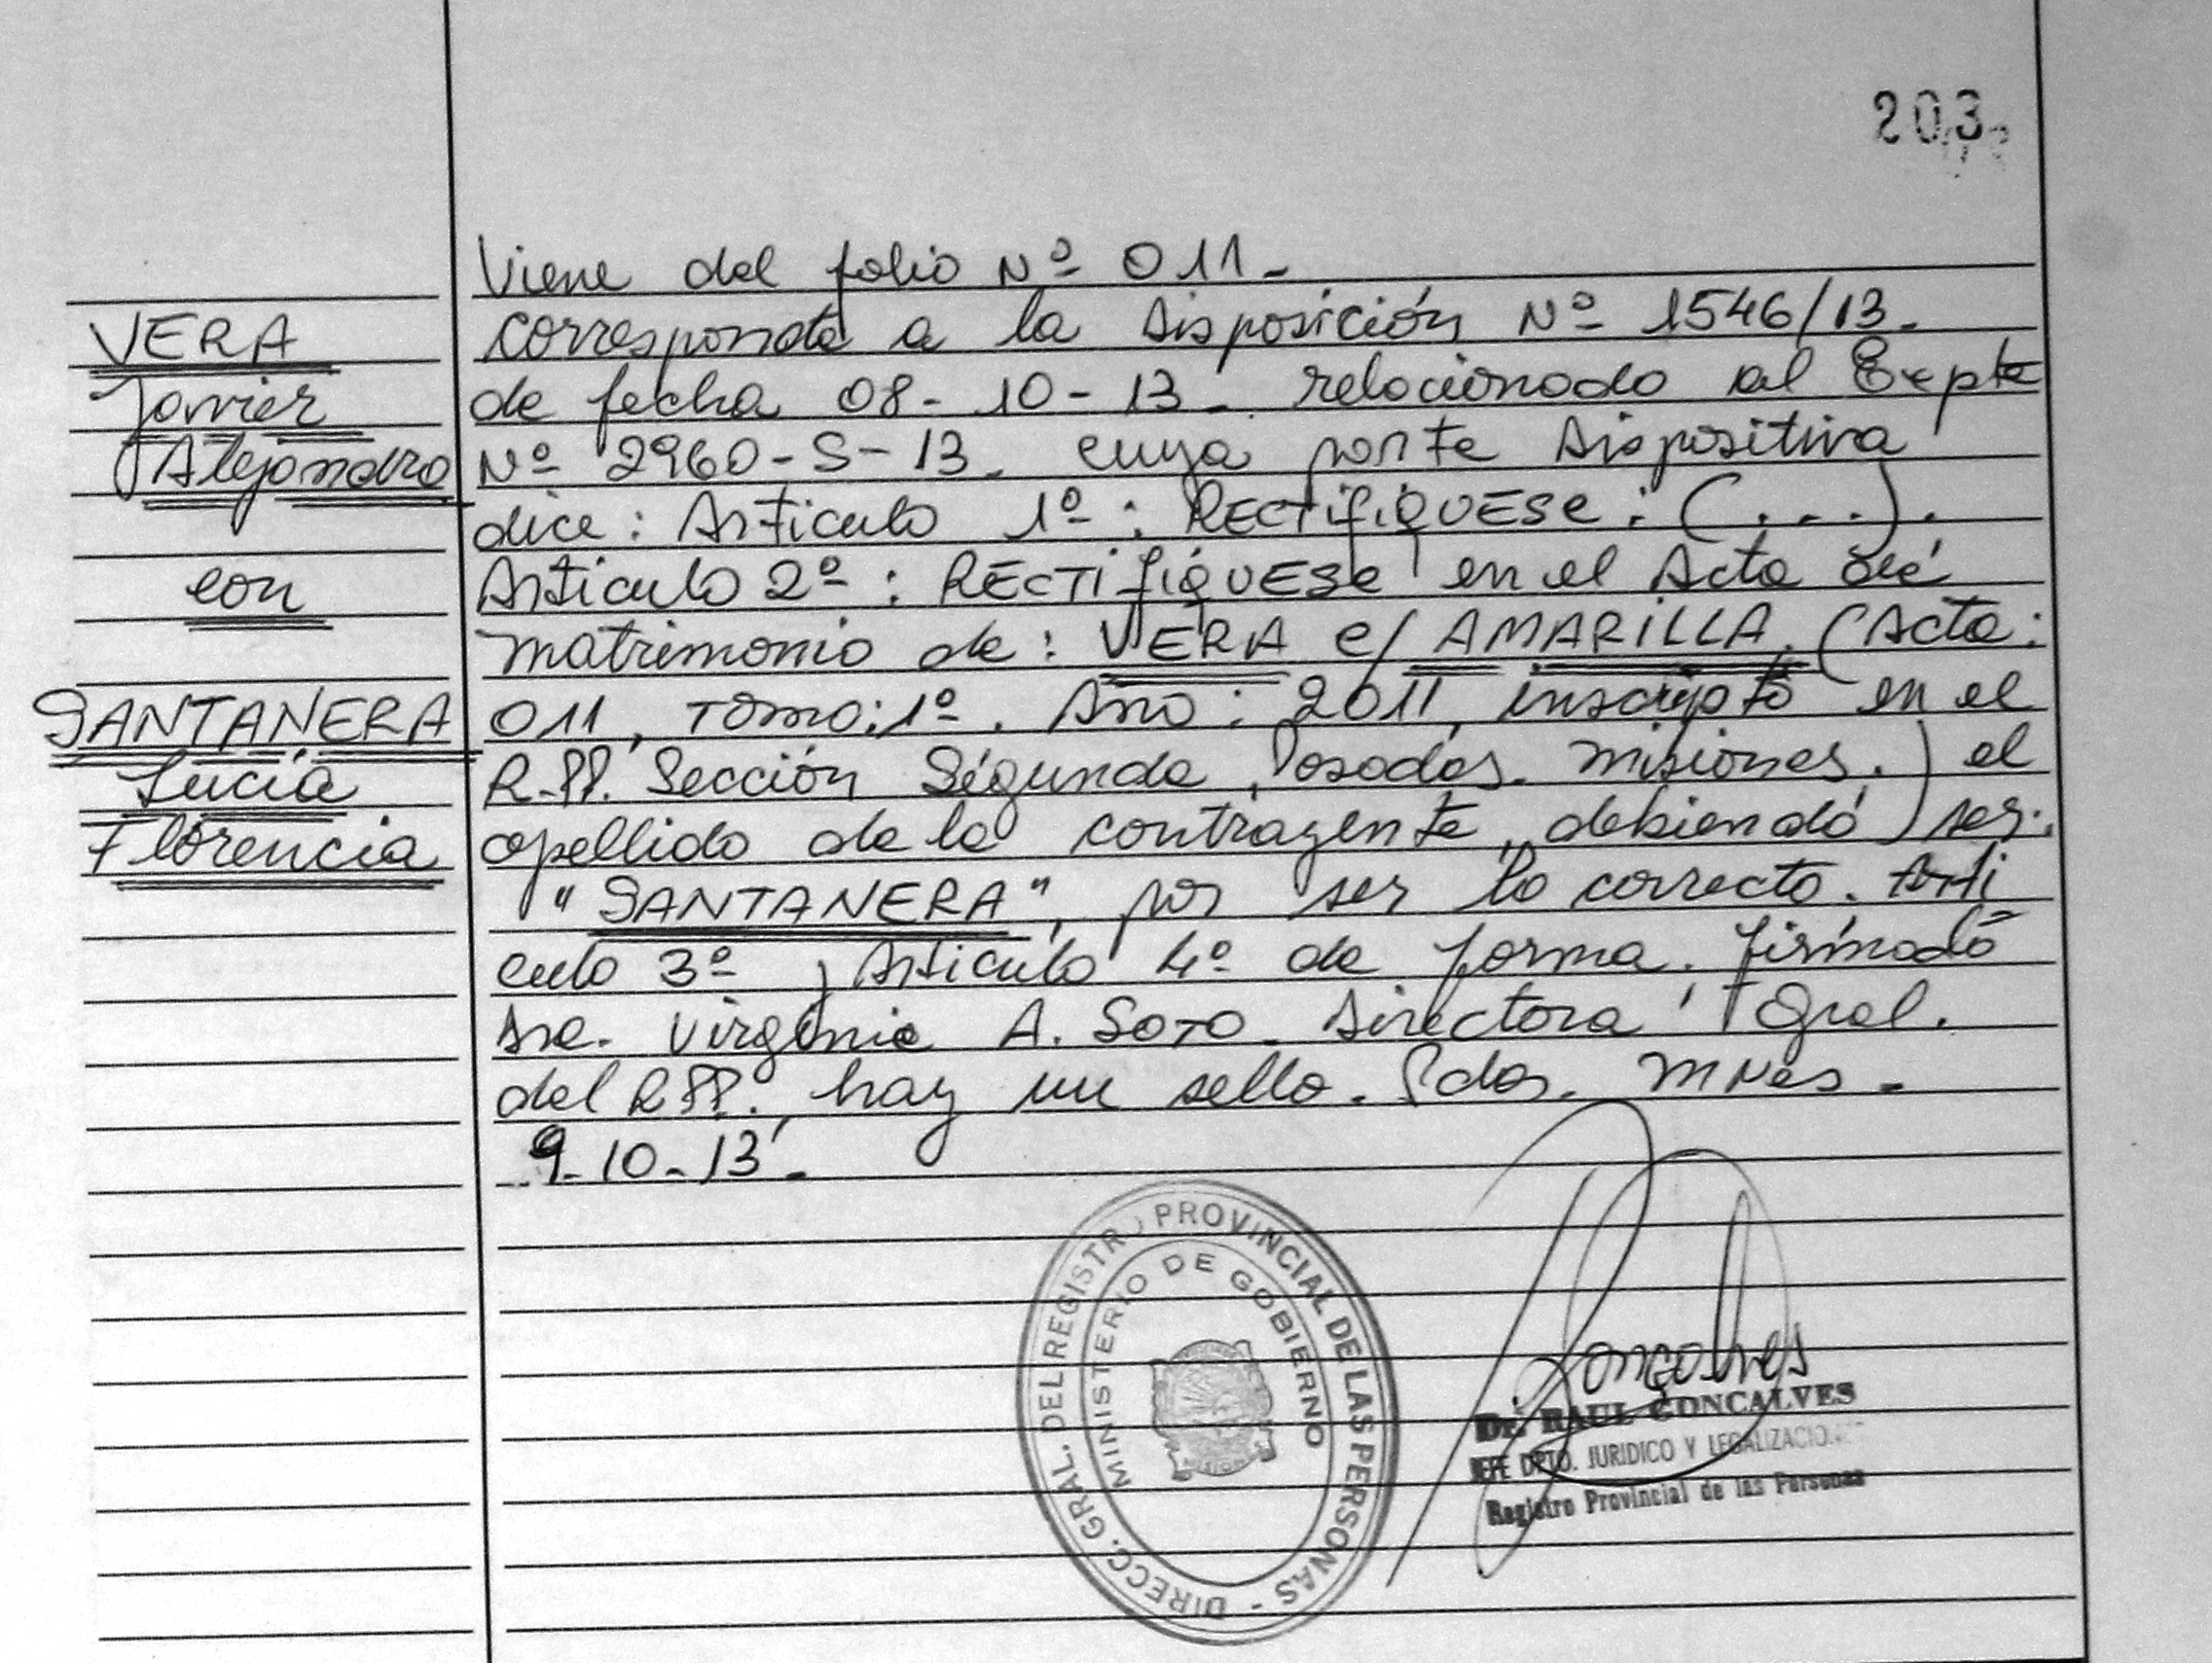 203
Viene del folio Nº 011-
VERA
Javier
Alejandro
con
SANTANERA
Lucía
Florencia
corresponde a la Disposición Nº 1546/13-
de fecha 08-10-13- relacionado al Expte
Nº 2960-S-13- cuya parte Dispositiva
dice: Articulo 1º: RECTIFIQUESE: (...).
Articulo 2º: RECTIFIQUESE en el Acta de
matrimonio de: VERA c/ AMARILLA. (Acta:
011, Tomo:1º. Año: 2011, inscripto en el
R.PP. Sección Segunda, Posadas. Misiones.) el
apellido de la contrayente, debiendo ser:
"SANTANERA", por ser lo correcto. Arti
culo 3º y Articulo 4º de forma. Firmado
Sra. Virginia A. SOTO. Directora Gral.
del RPP. hay un sello. Pdas. Mnes-
9-10-13-
DIRECC. GRAL. DEL REGISTRO PROVINCIAL DE LAS PERSONAS -
MINISTERIO DE GOBIERNO
Goncalves
Dr. RAUL GONCALVES
JEFE DPTO. JURIDICO Y LEGALIZACION
Registro Provincial de las Personas